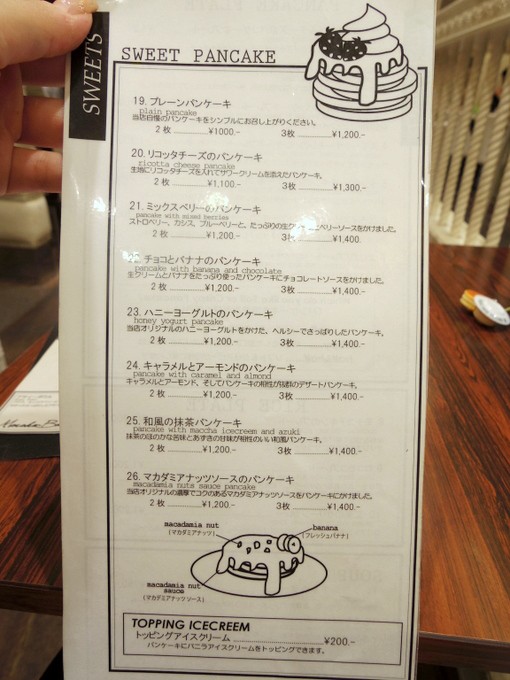 SWEETS
SWEET PANCAKE
19. プレーンパンケーキ
plain pancake
当店自慢のパンケーキをシンプルにお召し上がりください。
2枚 ¥1000.- 3枚 ¥1,200.-
20. リコッタチーズのパンケーキ
ricotta cheese pancake
生地にリコッタチーズを入れてサワークリームを添えたパンケーキ。
2枚 ¥1,100.- 3枚 ¥1,300.-
21. ミックスベリーのパンケーキ
pancake with mixed berries
ストロベリー、カシス、ブルーベリーと、たっぷりの生クリームにベリーソースをかけました。
2枚 ¥1,200.- 3枚 ¥1,400.
22. チョコとバナナのパンケーキ
pancake with banana and chocolate
生クリームとバナナをたっぷり使ったパンケーキにチョコレートソースをかけました。
2枚 ¥1,200.- 3枚 ¥1,400.-
23. ハニーヨーグルトのパンケーキ
honey yogurt pancake
当店オリジナルのハニーヨーグルトをかけた、ヘルシーでさっぱりしたパンケーキ。
2枚 ¥1,200.- 3枚 ¥1,400.-
24. キャラメルとアーモンドのパンケーキ
pancake with caramel and almond
キャラメルとアーモンド、そしてパンケーキの相性が抜群のデザートパンケーキ。
2枚 ¥1,200.- 3枚 ¥1,400.-
25. 和風の抹茶パンケーキ
pancake with maccha icecreem and azuki
抹茶のほのかな苦味とあずきの甘味が相性のいい和風パンケーキ。
2枚 ¥1,200.- 3枚 ¥1,400.-
26. マカダミアナッツソースのパンケーキ
macadamia nuts sauce pancake
当店オリジナルの濃厚でコクのあるマカダミアナッツソースをパンケーキにかけました。
2枚 ¥1,200.- 3枚 ¥1,400.-
macadamia nut
(マカダミアナッツ)
banana
(フレッシュバナナ)
macadamia nut
sauce
(マカダミアナッツソース)
TOPPING ICECREEM
トッピングアイスクリーム ¥200.-
パンケーキにバニラアイスクリームをトッピングできます。